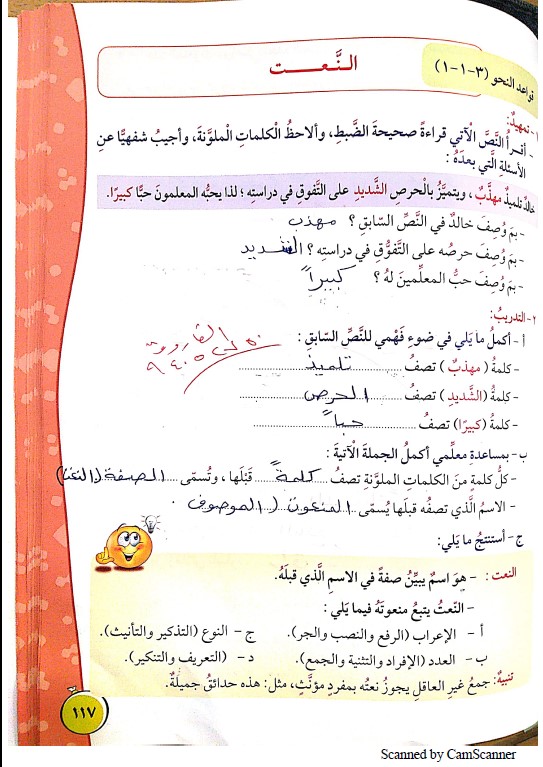 قواعد النحو (٣-١-١)
النَّعـــــــت
١- تمهيدٌ:
- أقـرأُ النَّصَّ الْآتي قراءةً صحيحةَ الضَّبطِ، وألاحظُ الْكلماتِ الْملوَّنةَ، وأجيبُ شفهيًّا عنِ
الأسئلةِ الَّتي بعدَهُ :
خالدٌ تلميذٌ مهذَّبٌ ، ويتميَّزُ بالْحرصِ الشَّديدِ على التَّفوقِ في دراستِهِ ؛ لذا يحبُّه المعلمونَ حبًّا كبيرًا.
- بمَ وُصِفَ خالدٌ في النَّصِّ السّابقِ ؟ مهذب
- بمَ وُصِفَ حرصُه على التَّفوُّقِ في دراستِهِ ؟ الشديد
- بمَ وُصِفَ حبُّ المعلِّمينَ لهُ ؟ كبيراً
٢- التدريبُ:
أ - أكملُ ما يَلي في ضوءِ فَهْمي للنَّصِّ السّابقِ :
- كلمةُ ( مهذبٌ ) تصفُ تلميذ
- كلمةُ (الشَّديدِ ) تصفُ الحرص
- كلمةُ ( كبيرًا) تصفُ حباً
ب - بمساعدةِ معلِّمي أكملُ الجملةَ الْآتيةَ :
- كلُّ كلمةٍ منَ الكلماتِ الملوَّنةِ تصفُ كلمة قبْلَها ، وتُسمّى الصفة (النعت)
- الاسمُ الَّذي تصفُه قبلَها يُسمّى المنعوت (الموصوف) .
ج - أستنتجُ ما يَلي:
النعت : - هوَ اسمٌ يبيِّنُ صفةً في الاسمِ الَّذي قبلَهُ.
- النَّعتُ يتبعُ منعوتَهُ فيما يَلي :
أ - الإعراب (الرفع والنصب والجر). ج - النوع (التذكير والتأنيث).
ب - العدد (الإفراد والتثنية والجمع). د - (التعريف والتنكير).
تنبيهٌ: جمعُ غيرِ العاقلِ يجوزُ نعتُه بمفردٍ مؤنَّثٍ، مثل: هذه حدائقُ جميلةٌ.
١١٧
Scanned by CamScanner